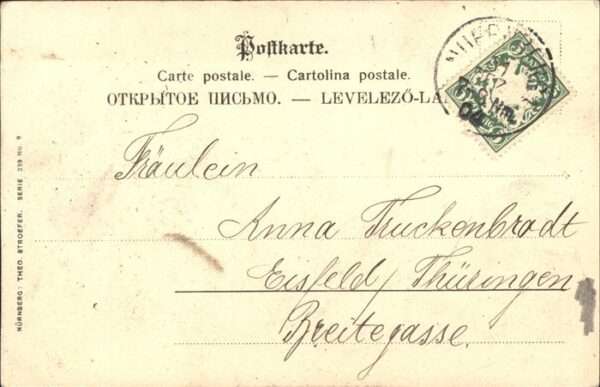 Postkarte.
Carte postale. — Cartolina postale.
ОТКРЫТОЕ ПИСЬМО. — LEVELEZŐ-LA
Fräulein
Anna Truckenbrodt
Eisfeld/Thüringen
Breitegasse.
NÜRNBERG: THEO. STROEFER. SERIE 239 No. 9
04